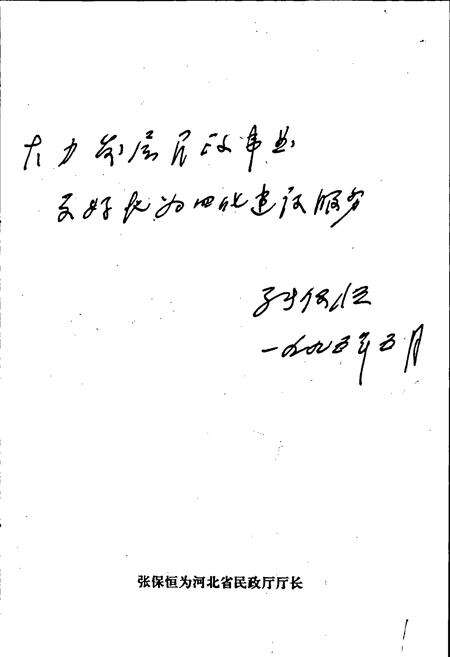 大力发展民政事业
更好地为四化建设服务
张保恒
一九九五年五月
张保恒为河北省民政厅厅长